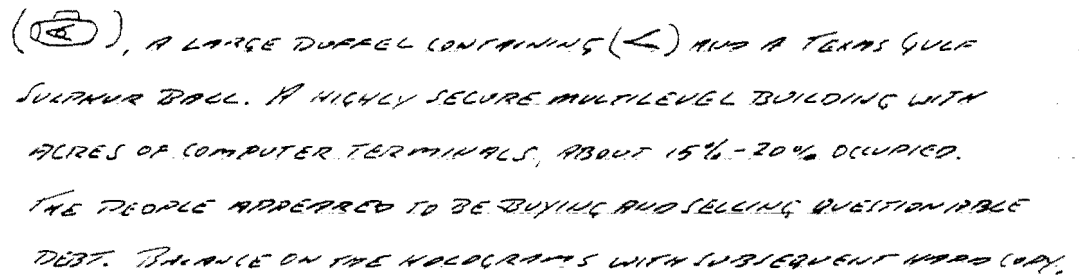 ( ), A LARGE DUFFEL CONTAINING (<) AND A TEXAS GULF
SULPHUR BALL. A HIGHLY SECURE MULTILEVEL BUILDING WITH
ACRES OF COMPUTER TERMINALS, ABOUT 15%-20% OCCUPIED.
THE PEOPLE APPEARED TO BE BUYING AND SELLING QUESTIONABLE
DEBT. BALANCE ON THE HOLOGRAMS WITH SUBSEQUENT HARD COPY.